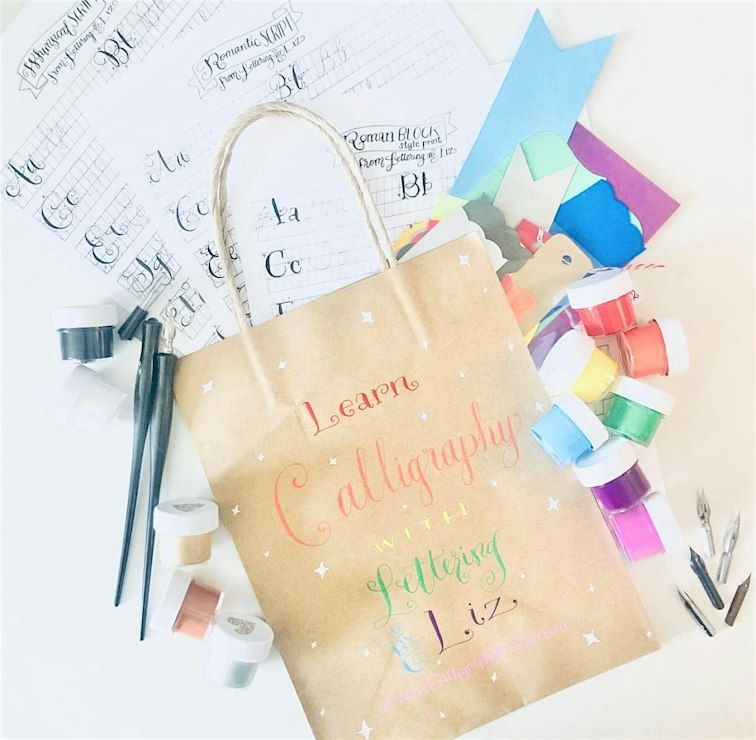 Whimsical SCRIPT
from Lettering by Liz
Bb
Aa
Cc
Romantic SCRIPT
from Lettering by Liz
Bb
Aa
Cc
Roman BLOCK
style print
from Lettering by Liz
Bb
Aa
Cc
Learn
Calligraphy
WITH
Lettering
by Liz